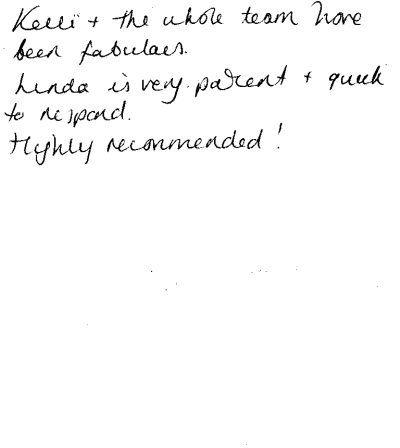 Kelli + the whole team have
been fabulous.
Linda is very patient + quick
to respond.
Highly recommended!